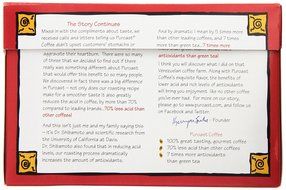 The Story Continues
Mixed in with the compliments about taste, we
received calls and letters telling us Puroast®
Coffee didn't upset customers' stomachs or
aggravate their heartburn. There were so many
of these that we decided to find out if there
really was something different about Puroast
that would offer this benefit to so many people.
We discovered in fact there was a big difference
in Puroast - not only does our roasting recipe
make for a smoother taste it also greatly
reduces the acid in coffee, by more than 70%
compared to leading brands. 70% less acid than
other coffees!
And this isn't just me and my family saying this
– it's Dr. Shibamoto and scientific research from
the University of California at Davis.
Dr. Shibamoto also found that in reducing acid
levels, our roasting process dramatically
increases the amount of antioxidants.
And by dramatic I mean by 5 times more
than other leading coffees, and 7 times
more than green tea! 7 times more
antioxidants than green tea!
I think you will discover what I did on that
Venezuelan coffee farm. Along with Puroast
Coffee's exquisite flavor, the benefits of
lower acid and rich levels of antioxidants
will bring you enjoyment like no other coffee
ever has before. For more on our story,
please go to www.puroast.com, and follow us
on Facebook and Twitter.
- Founder
Puroast Coffee
100% great tasting, gourmet coffee
70% less acid than other coffee
7 times more antioxidants
than green tea